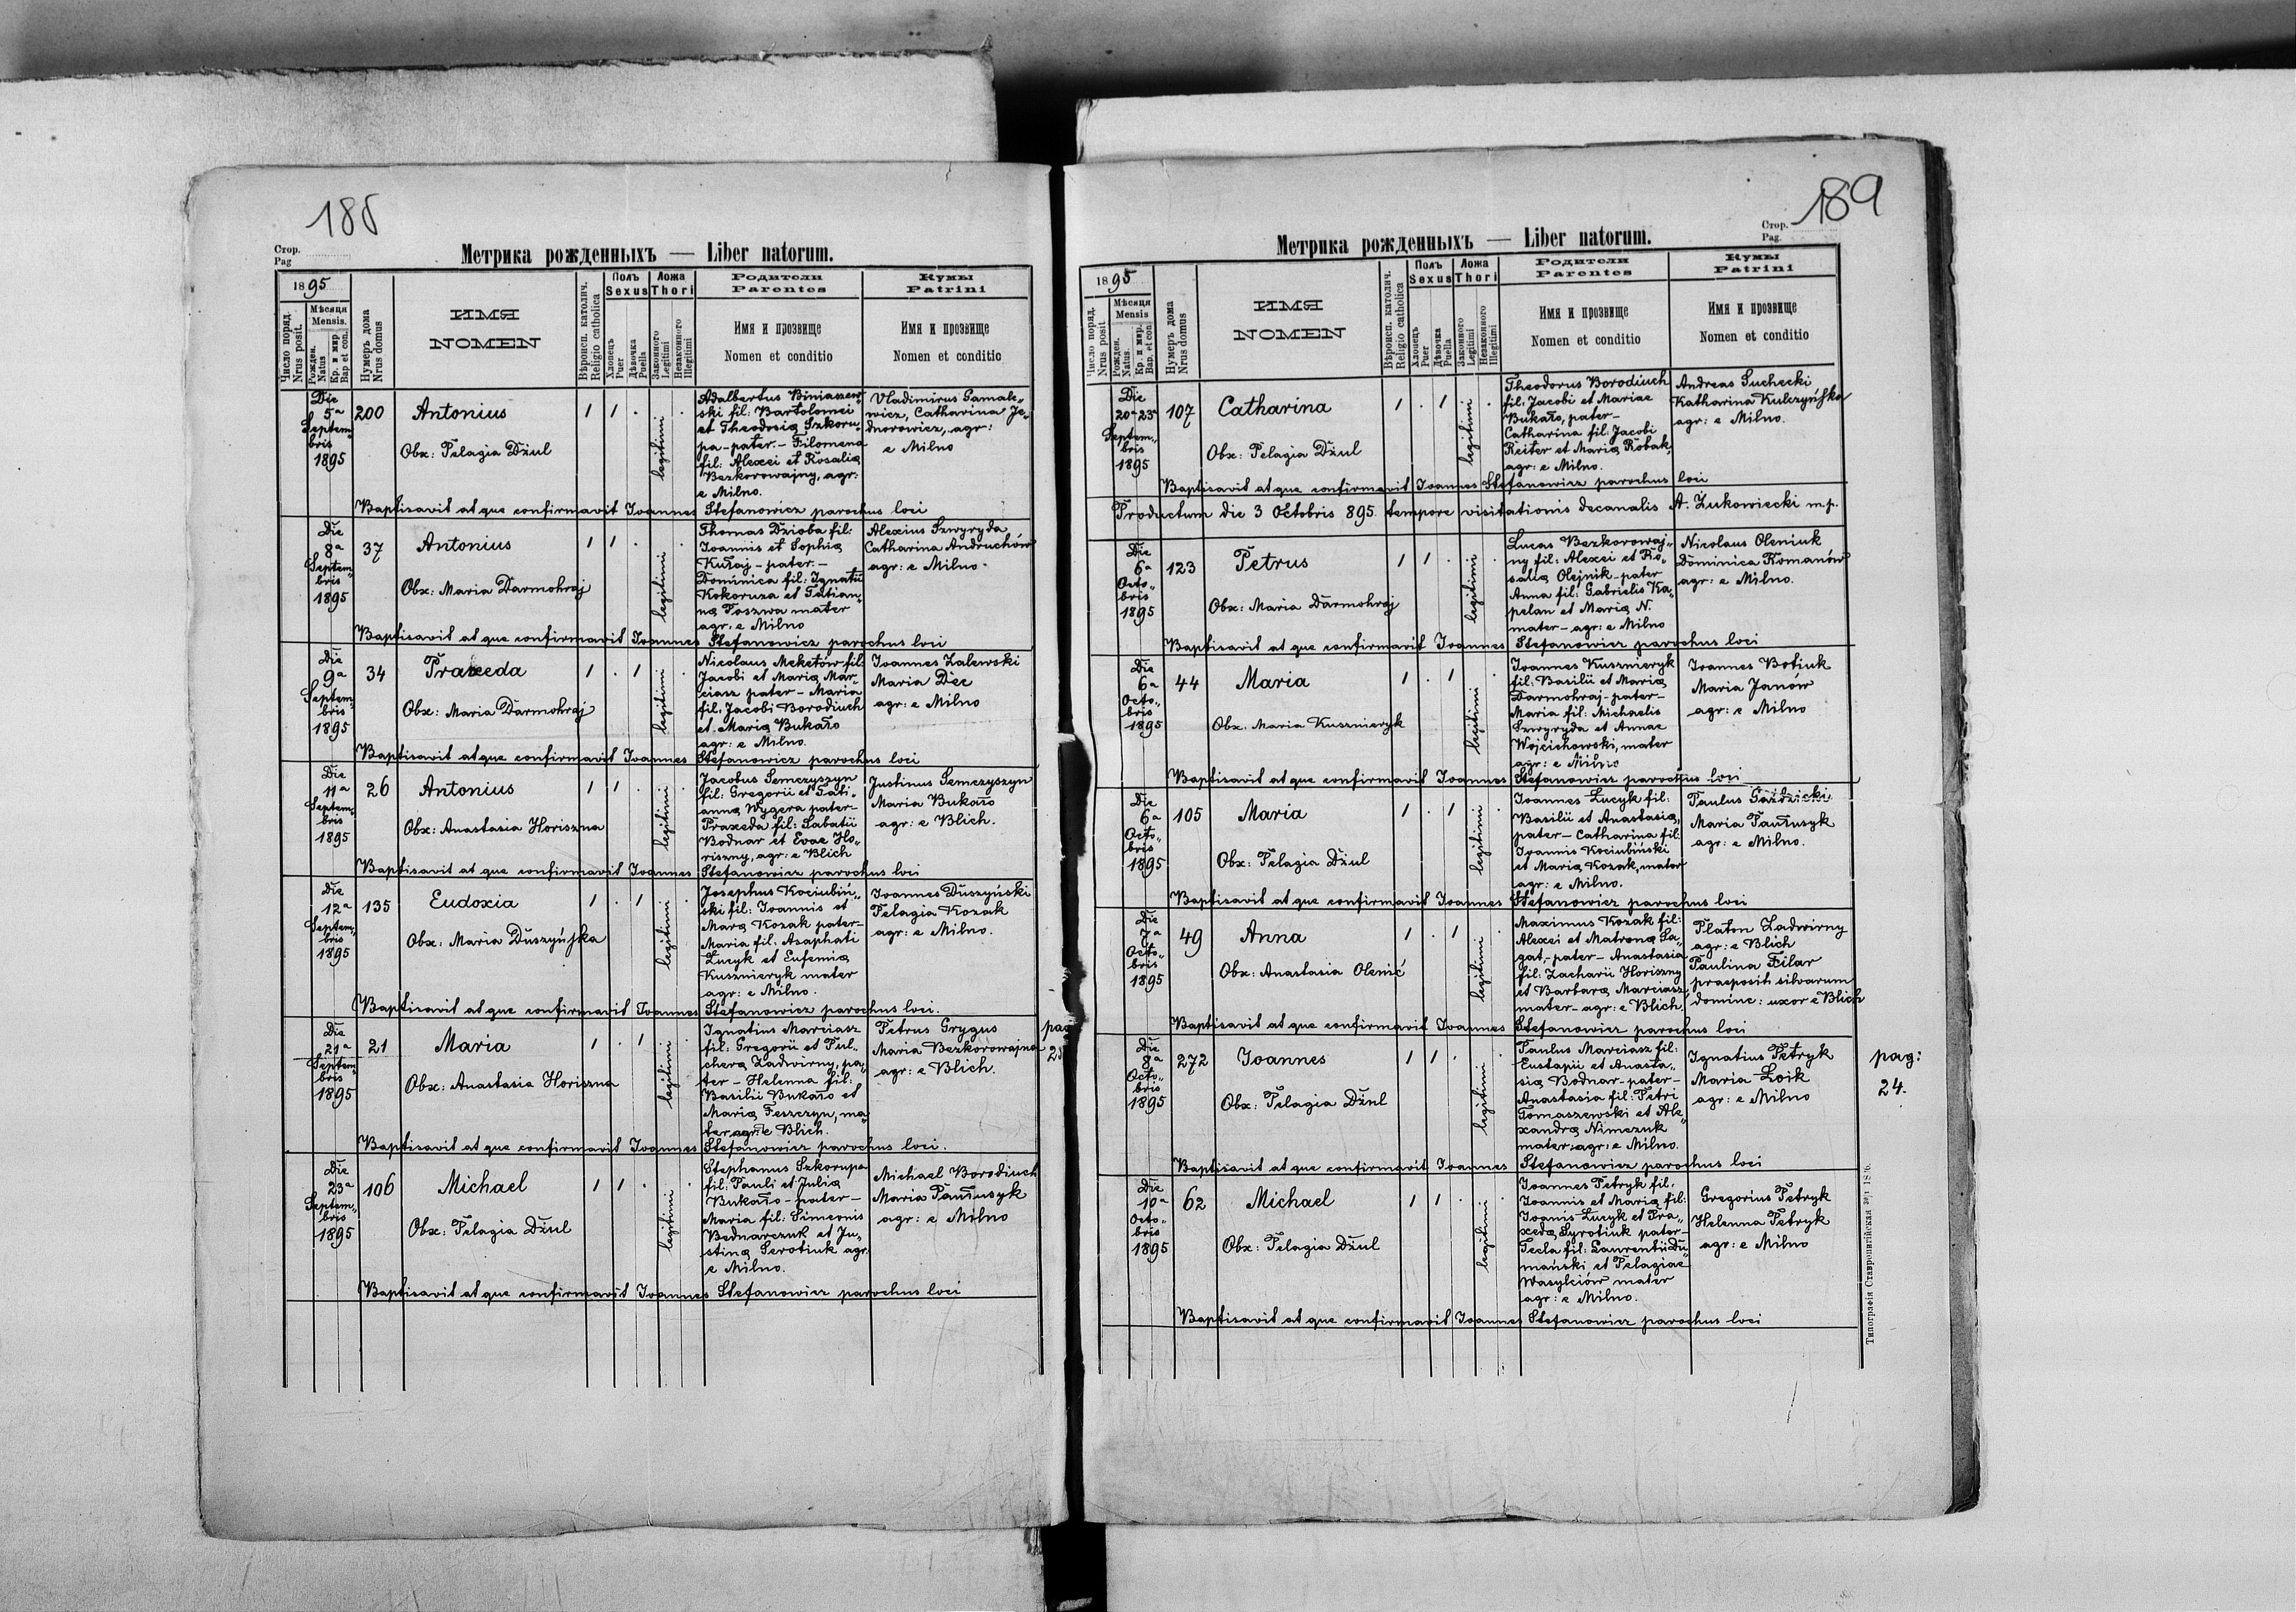 188
Стор.
Pag
Метрика рожденныхъ — Liber natorum.
1895
Число поряд.
Nrus posit.
Мѣсяця
Mensis.
Рожден.
Natus
Кр. и мѵр.
Bap et con.
Нумеръ дома
Nrus domus
ИМЯ
NOMEN
Вѣроисп. католич.
Religio catholica
Полъ
Sexus
Хлопецъ
Puer
Дѣвочка
Puella
Ложа
Thori
Законного
Legitimi
Незаконного
Illegitimi
Родители
Parentes
Имя и прозвище
Nomen et conditio
Кумы
Patrini
Имя и прозвище
Nomen et conditio
Die
5a
Septem„
bris
1895
200
Antonius
Obx: Pelagia Dżul
1 1 . .
legitimi
Adalbertus Biniaszew„
ski fil: Bartolomei
et Theodosia Szkoru„
pa - pater. - Filomena
fil: Alexei et Rosalia
Bezkorowajny, agr:
e Milno.
Vladimirus Gamale„
wicz, Catharina Je„
dnorowicz, agr:
e Milno
Baptisavit atque confirmavit Joannes Stefanowicz parochus loci
Die
8a
Septem„
bris
1895
37
Antonius
Obx: Maria Darmohraj
1 1 . .
legitimi
Thomas Dzioba fil:
Joannis et Sophia
Kułaj - pater. -
Dominica fil: Ignatii
Kokoruza et Tatian„
na Poszwa mater
agr: e Milno
Alexius Szwyryda
Catharina Andruchów
agr: e Milno -
Baptisavit atque confirmavit Joannes Stefanowicz parochus loci
Die
9a
Septem„
bris
1895
34
Praxeda
Obx: Maria Darmohraj
1 . 1 .
legitimi
Nicolaus Meketów fil:
Jacobi et Maria Mar„
ciasz pater - Maria
fil: Jacobi Borodiuch
et Maria Bukało
agr: e Milno.
Joannes Zalewski
Maria Dec
agr: e Milno
Baptisavit atque confirmavit Joannes Stefanowicz parochus loci
Die
11a
Septem„
bris
1895
26
Antonius
Obx: Anastasia Horiszna
1 1 . .
legitimi
Jacobus Semczyszyn
fil: Gregorii et Tati„
anna Wygera pater -
Praxeda fil: Sabatii
Bodnar et Evae Ho„
riszny, agr: e Blich
Justinus Semczyszyn
Maria Bukało
agr: e Blich.
Baptisavit atque confirmavit Joannes Stefanowicz parochus loci
Die
12a
Septem„
bris
1895
135
Eudoxia
Obx: Maria Duszyńska
1 . 1 .
legitimi
Josephus Kociubiń„
ski fil: Joannis et
Mara Kozak pater -
Maria fil: Asaphati
Łucyk et Eufemia
Kusznieryk mater
agr: e Milno.
Joannes Duszyński
Pelagia Kozak
agr: e Milno.
Baptisavit atque confirmavit Joannes Stefanowicz parochus loci.
Die
21a
Septem„
bris
1895
21
Maria
Obx: Anastasia Horiszna
1 . 1 .
legitimi
Ignatius Marciasz
fil: Gregorii et Pul„
chera Zadwirny, pa„
ter - Helenna fil:
Basilii Bukało et
Maria Feszczyn, ma
ter agr: e Blich.
Petrus Grygus
Maria Bezkorowajna
agr: e Blich.
pag
Baptisavit atque confirmavit Joannes Stefanowicz parochus loci.
Die
23a
Septem„
bris
1895
106
Michael
Obx: Pelagia Dżul
1 1 . .
legitimi
Stephanus Szkorupa
fil: Pauli et Julia
Bukało - pater -
Maria fil: Simeonis
Bednarczuk et Ju„
stina Serotiuk agr:
e Milno.
Michael Borodiuch
Maria Pawlusyk
agr: e Milno
Baptisavit atque confirmavit Joannes Stefanowicz parochus loci
189
Стор.
Pag.
Метрика рожденныхъ — Liber natorum.
1895
Число поряд.
Nrus posit.
Мѣсяця
Mensis
Рожден.
Natus.
Кр. и мѵр.
Bap. et con.
Нумеръ дома
Nrus domus
ИМЯ
NOMEN
Вѣроисп. католич.
Religio catholica
Полъ
Sexus
Хлопецъ
Puer
Дѣвочка
Puella
Ложа
Thori
Законного
Legitimi
Незаконного
Illegitimi
Родители
Parentes
Имя и прозвище
Nomen et conditio
Кумы
Patrini
Имя и прозвище
Nomen et conditio
Die
20a 23a
Septem„
bris
1895
107
Catharina
Obx: Pelagia Dżul
1 . 1 .
legitimi
Theodorus Borodiuch
fil: Jacobi et Mariae
Bukało, pater -
Catharina fil: Jacobi
Reiter et Maria Robak,
agr: e Milno.
Andreas Suchecki
Katharina Kulczyńska
agr: e Milno.
Baptisavit atque confirmavit Joannes Stefanowicz parochus loci
Productum die 3 Octobris 895. tempore visitationis decanalis A. Żukowiecki m.p.
Die
6a
Octo„
bris
1895
123
Petrus
Obx: Maria Darmohraj
1 1 . .
legitimi
Lucas Bezkorowaj„
ny fil: Alexei et Ro„
salia Olejnik - pater
Anna fil: Gabrielis Ka„
pelan et Maria N.
mater - agr: e Milno
Nicolaus Oleniuk
Dominica Romanów
agr: e Milno.
Baptisavit atque confirmavit Joannes Stefanowicz parochus loci
Die
6a
Octo„
bris
1895
44
Maria
Obx: Maria Kusznieryk
1 . 1 .
legitimi
Joannes Kusznieryk
fil: Basilii et Maria
Darmohraj - pater -
Maria fil: Michaelis
Szwyryda et Annae
Wojcichowski, mater
agr: e Milno
Joannes Botiuk
Maria Janów
agr: e Milno
Baptisavit atque confirmavit Joannes Stefanowicz parochus loci
Die
6a
Octo„
bris
1895
105
Maria
Obx: Pelagia Dżul
1 . 1 .
legitimi
Joannes Łucyk fil:
Basilii et Anastasia,
pater - Catharina fil:
Joannis Kociubiński
et Maria Kozak, mater
agr: e Milno.
Paulus Gaździcki
Maria Pawlusyk
agr: e Milno.
Baptisavit atque confirmavit Joannes Stefanowicz parochus loci
Die
7a
Octo„
bris
1895
49
Anna
Obx: Anastasia Olenić
1 . 1 .
legitimi
Maximus Kozak fil:
Alexei et Matrona Sa„
gat, - pater - Anastasia
fil: Zacharii Horiszny
et Barbara Marciasz,
mater - agr: e Blich.
Platon Zadwirny
agr: e Blich
Paulina Filar
praepositi silvarum
dominc: uxor e Blich
Baptisavit atque confirmavit Joannes Stefanowicz parochus loci
Die
8a
Octo„
bris
1895
272
Joannes
Obx: Pelagia Dżul
1 1 . .
legitimi
Paulus Marciasz fil:
Eustapii et Anasta„
sia Bodnar - pater -
Anastasia fil: Petri
Tomaszewski et Ale„
xandra Nimczuk
mater: agr: e Milno.
Ignatius Petryk
Maria Łoik
agr: e Milno
pag:
24.
Baptisavit atque confirmavit Joannes Stefanowicz parochus loci
Die
10a
Octo„
bris
1895
62
Michael
Obx: Pelagia Dżul
1 1 . .
legitimi
Joannes Petryk fil:
Joannis et Maria fil:
Joanis Łucyk et Pra„
xeda Syrotiuk pater -
Tecla fil: Laurentii Du„
mański et Pelagiae
Wasylciów mater
agr: e Milno.
Gregorius Petryk
Helenna Petryk
agr: e Milno
Baptisavit atque confirmavit Joannes Stefanowicz parochus loci
Типографія Ставропигійская